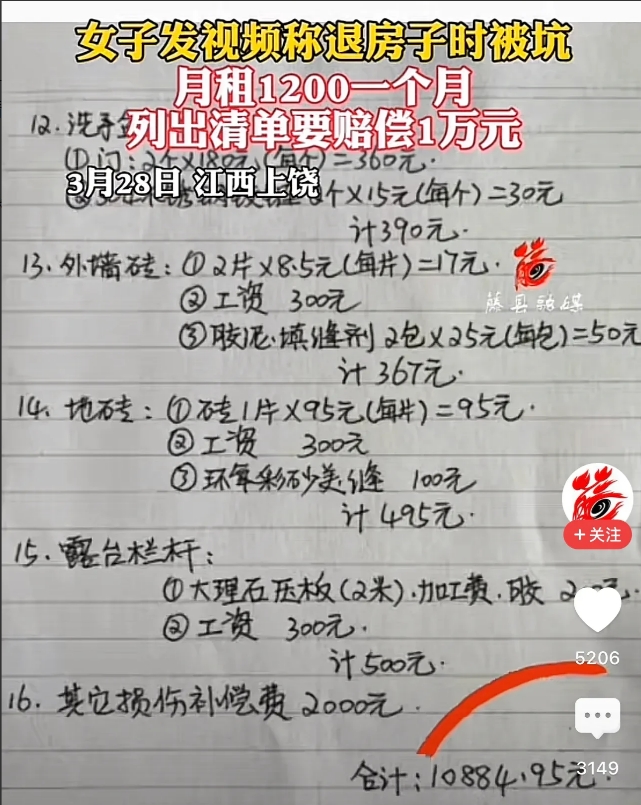 女子发视频称退房子时被坑
月租1200一个月
列出清单要赔偿1万元
3月28日 江西上饶
12. 洗手
①门:2个×180元(每个)=360元.
个×15元(每个)=30元
计390元.
13. 外墙砖:①2片×8.5元(每片)=17元.
②工资 300元
③胶泥.填缝剂 2包×25元(每包)=50元
计367元.
藤县融媒
14. 地砖:①砖1片×95元(每片)=95元.
②工资 300元
③环氧彩砂美缝 100元
计495元.
15. 露台栏杆:
①大理石压板(2米).加工费.胶 2
②工资 300元.
计500元.
16. 其它损伤补偿费 2000元.
合计:10884.95元.
藤
+关注
5206
3149